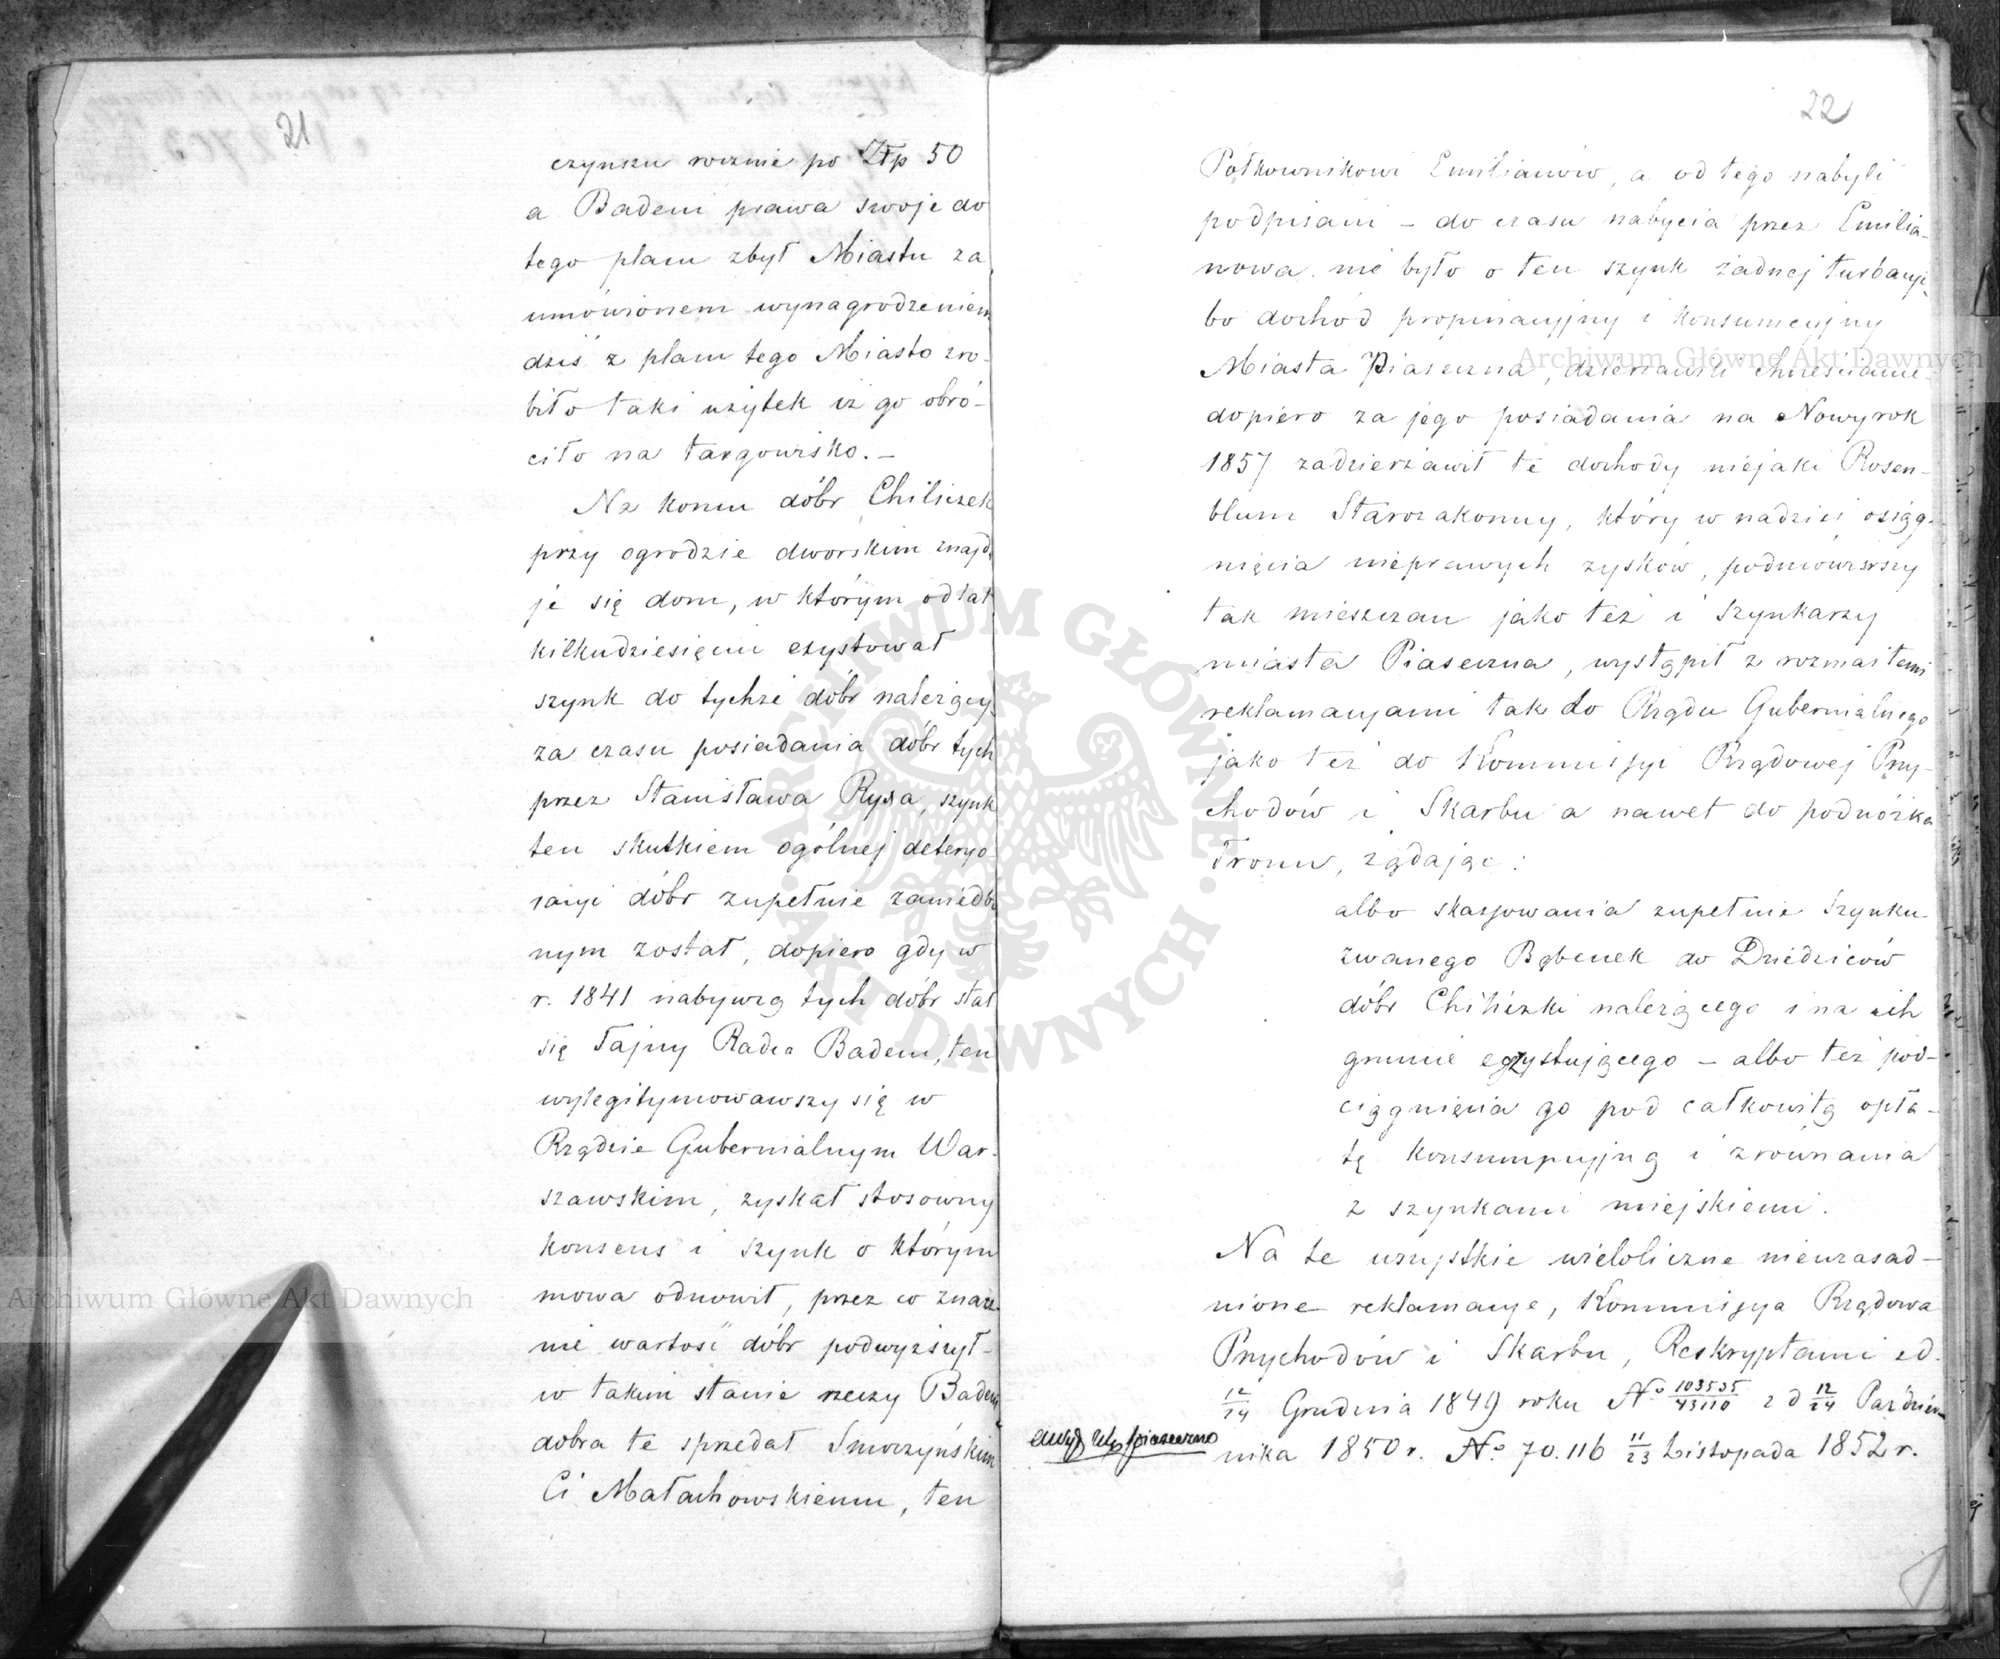 21
czynszu rocznie po Złp 50
a Badeni prawa swoje do
tego placu zbył Miastu za
umówionem wynagrodzeniem
dziś z placu tego Miasto zro-
biło taki użytek iż go obró-
ciło na targowisko. –
Na koncu dóbr Chiliczek
przy ogrodzie dworskim znajdu
je się dom, w którym od lat
kilkudziesięciu exystował
szynk do tychże dóbr należący
za czasu posiadania dóbr tych
przez Stanisława Rysa, szynk
ten skutkiem ogólnej deteryo
racyi dóbr zupełnie zaniedba
nym został, dopiero gdy w
r. 1841 nabywcą tych dóbr stał
się Tajny Radca Badeni, ten
wylegitymowawszy się w
Rządzie Gubernialnym War-
szawskim, zyskał stosowny
konsens i szynk o którym
mowa odnowił, przez co znacz-
nie wartość dóbr podwyższył –
w takim stanie rzeczy Badeni
dobra te sprzedał Smorzyńskim
Ci Małachowskiemu, ten
22
Półkownikowi Emilianów, a od tego nabyli
podpisani – do czasu nabycia przez Emilia-
nowa nie było o ten szynk żadnej turbacyi,
bo dochód propinacyjny i konsumcyjny
Miasta Piaseczna, dzierżawili chrześcianie
dopiero za jego posiadania na Nowy rok
1857 zadzierżawił te dochody niejaki Rosen-
blum Starozakonny, który w nadziei osiąg-
nięcia nieprawych zysków, podmówiwszy
tak mieszczan jako też i Szynkarzy
miasta Piaseczna, wystąpił z rozmaitemi
reklamacyami tak do Rządu Gubernialnego
jako też do Kommissyi Rządowej Przy-
chodów i Skarbu a nawet do podnóżka
Tronu, żądając:
albo skassowania zupełnie Szynku
zwanego Bębenek do Dziedziców
dóbr Chiliczki należącego i na ich
gruncie egzystującego – albo też pod-
ciągnięcia go pod całkowitą opła-
tę konsumpcyjną i zrównania
z szynkami miejskiemi.
Na te wszystkie wieloliczne nieuzasad-
nione reklamacye, Kommissya Rządowa
Przychodów i Skarbu, Reskryptami od
12/24 Grudnia 1849 roku No 103535/43110 z d 12/24 Paździer-
nika 1850 r. No 70.116 11/23 Listopada 1852 r.
Archiwum Główne Akt Dawnych
Archiwum Główne Akt Dawnych
ARCHIWUM GŁÓWNE AKT DAWNYCH